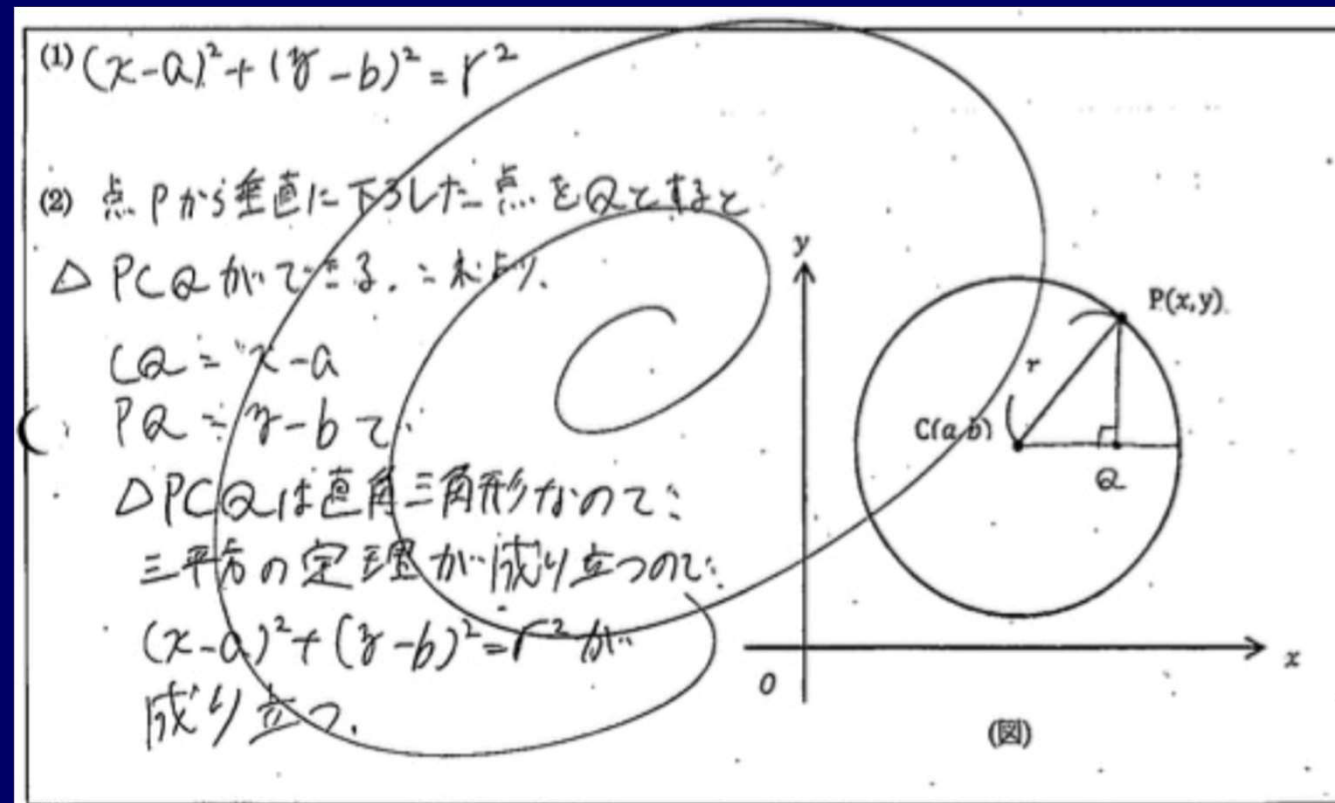 (1) (x-a)²+(y-b)²=r²
(2) 点Pから垂直に下ろした点をQとすると
△PCQができる.これより、
CQ=x-a
PQ=y-bで
△PCQは直角三角形なので
三平方の定理が成り立つので
(x-a)²+(y-b)²=r²が
成り立つ.
y
P(x,y)
r
C(a,b)
Q
O
x
(図)